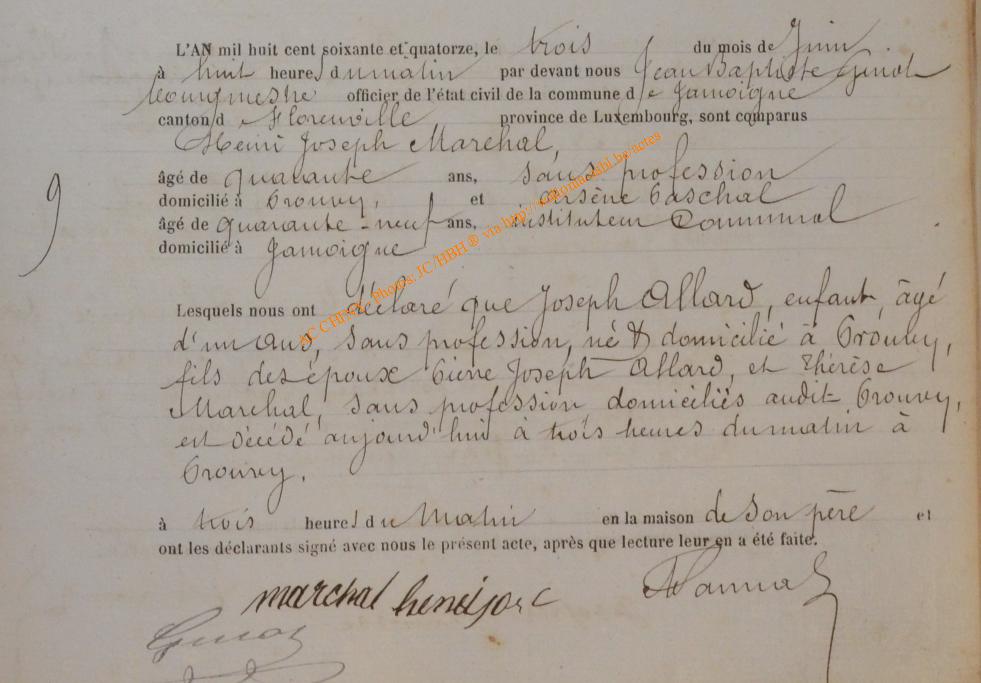 L'AN mil huit cent soixante et quatorze, le trois du mois de Juin
à huit heures du matin par devant nous Jean Baptiste
bourgmestre officier de l'état civil de la commune de Jamoigne
canton de Florenville province de Luxembourg, sont comparus
Henri Joseph Marchal,
âgé de quarante ans, sans profession
domicilié à Prouvy, et Arsène Paschal
âgé de quarante-neuf ans, instituteur Communal
domicilié à Jamoigne
9
Lesquels nous ont déclaré que Joseph Allard, enfant, âgé
d'un ans, sans profession, né & domicilié à Prouvy,
fils des époux Pierre Joseph Allard, et Thérèse
Marchal, sans profession domiciliés audit Prouvy,
est décédé aujourd'hui à trois heures du matin à
Prouvy.
à trois heures du Matin en la maison de son père et
ont les déclarants signé avec nous le présent acte, après que lecture leur en a été faite.
marchal henri jose
AC CHINY, Photos: JC/HBH ® via